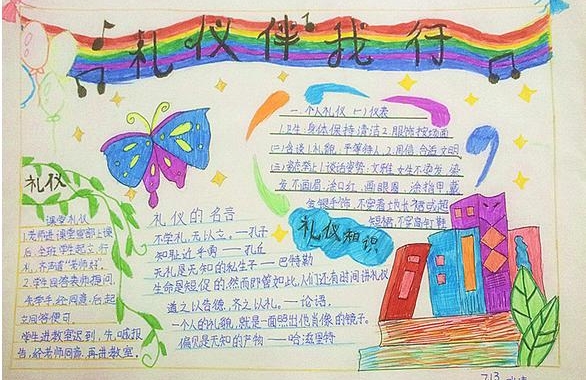 礼仪伴我行
一.个人礼仪(一)仪表
1.卫生:身体保持清洁2.服饰按场面
(二)言谈1.礼貌:平等待人 2.用信
(三)
发不画眉、涂口红、画眼圈、涂指甲、戴
金银手饰、不穿
礼仪知识
礼仪
课堂礼仪
1.老师进课堂宣部上课
后,全班学生起立行
礼,齐声道"老师好"。
2.学生回答老师提问,
先举手,经同意后起
立回答便可。
学生进教室迟到,先喊报
告,经老师同意,再进教室。
礼仪的名言
不学礼,无以立。——孔子
知耻近乎勇——孔丘
无礼是无知的私生子——巴特勒
生命是短促的,然而即管如此,人们还有时间讲礼仪
道之以告德,齐之以礼。——论语。
一个人的礼貌,就是一面照出他肖像的镜子。
偏见是无知的产物——哈兹里特
713